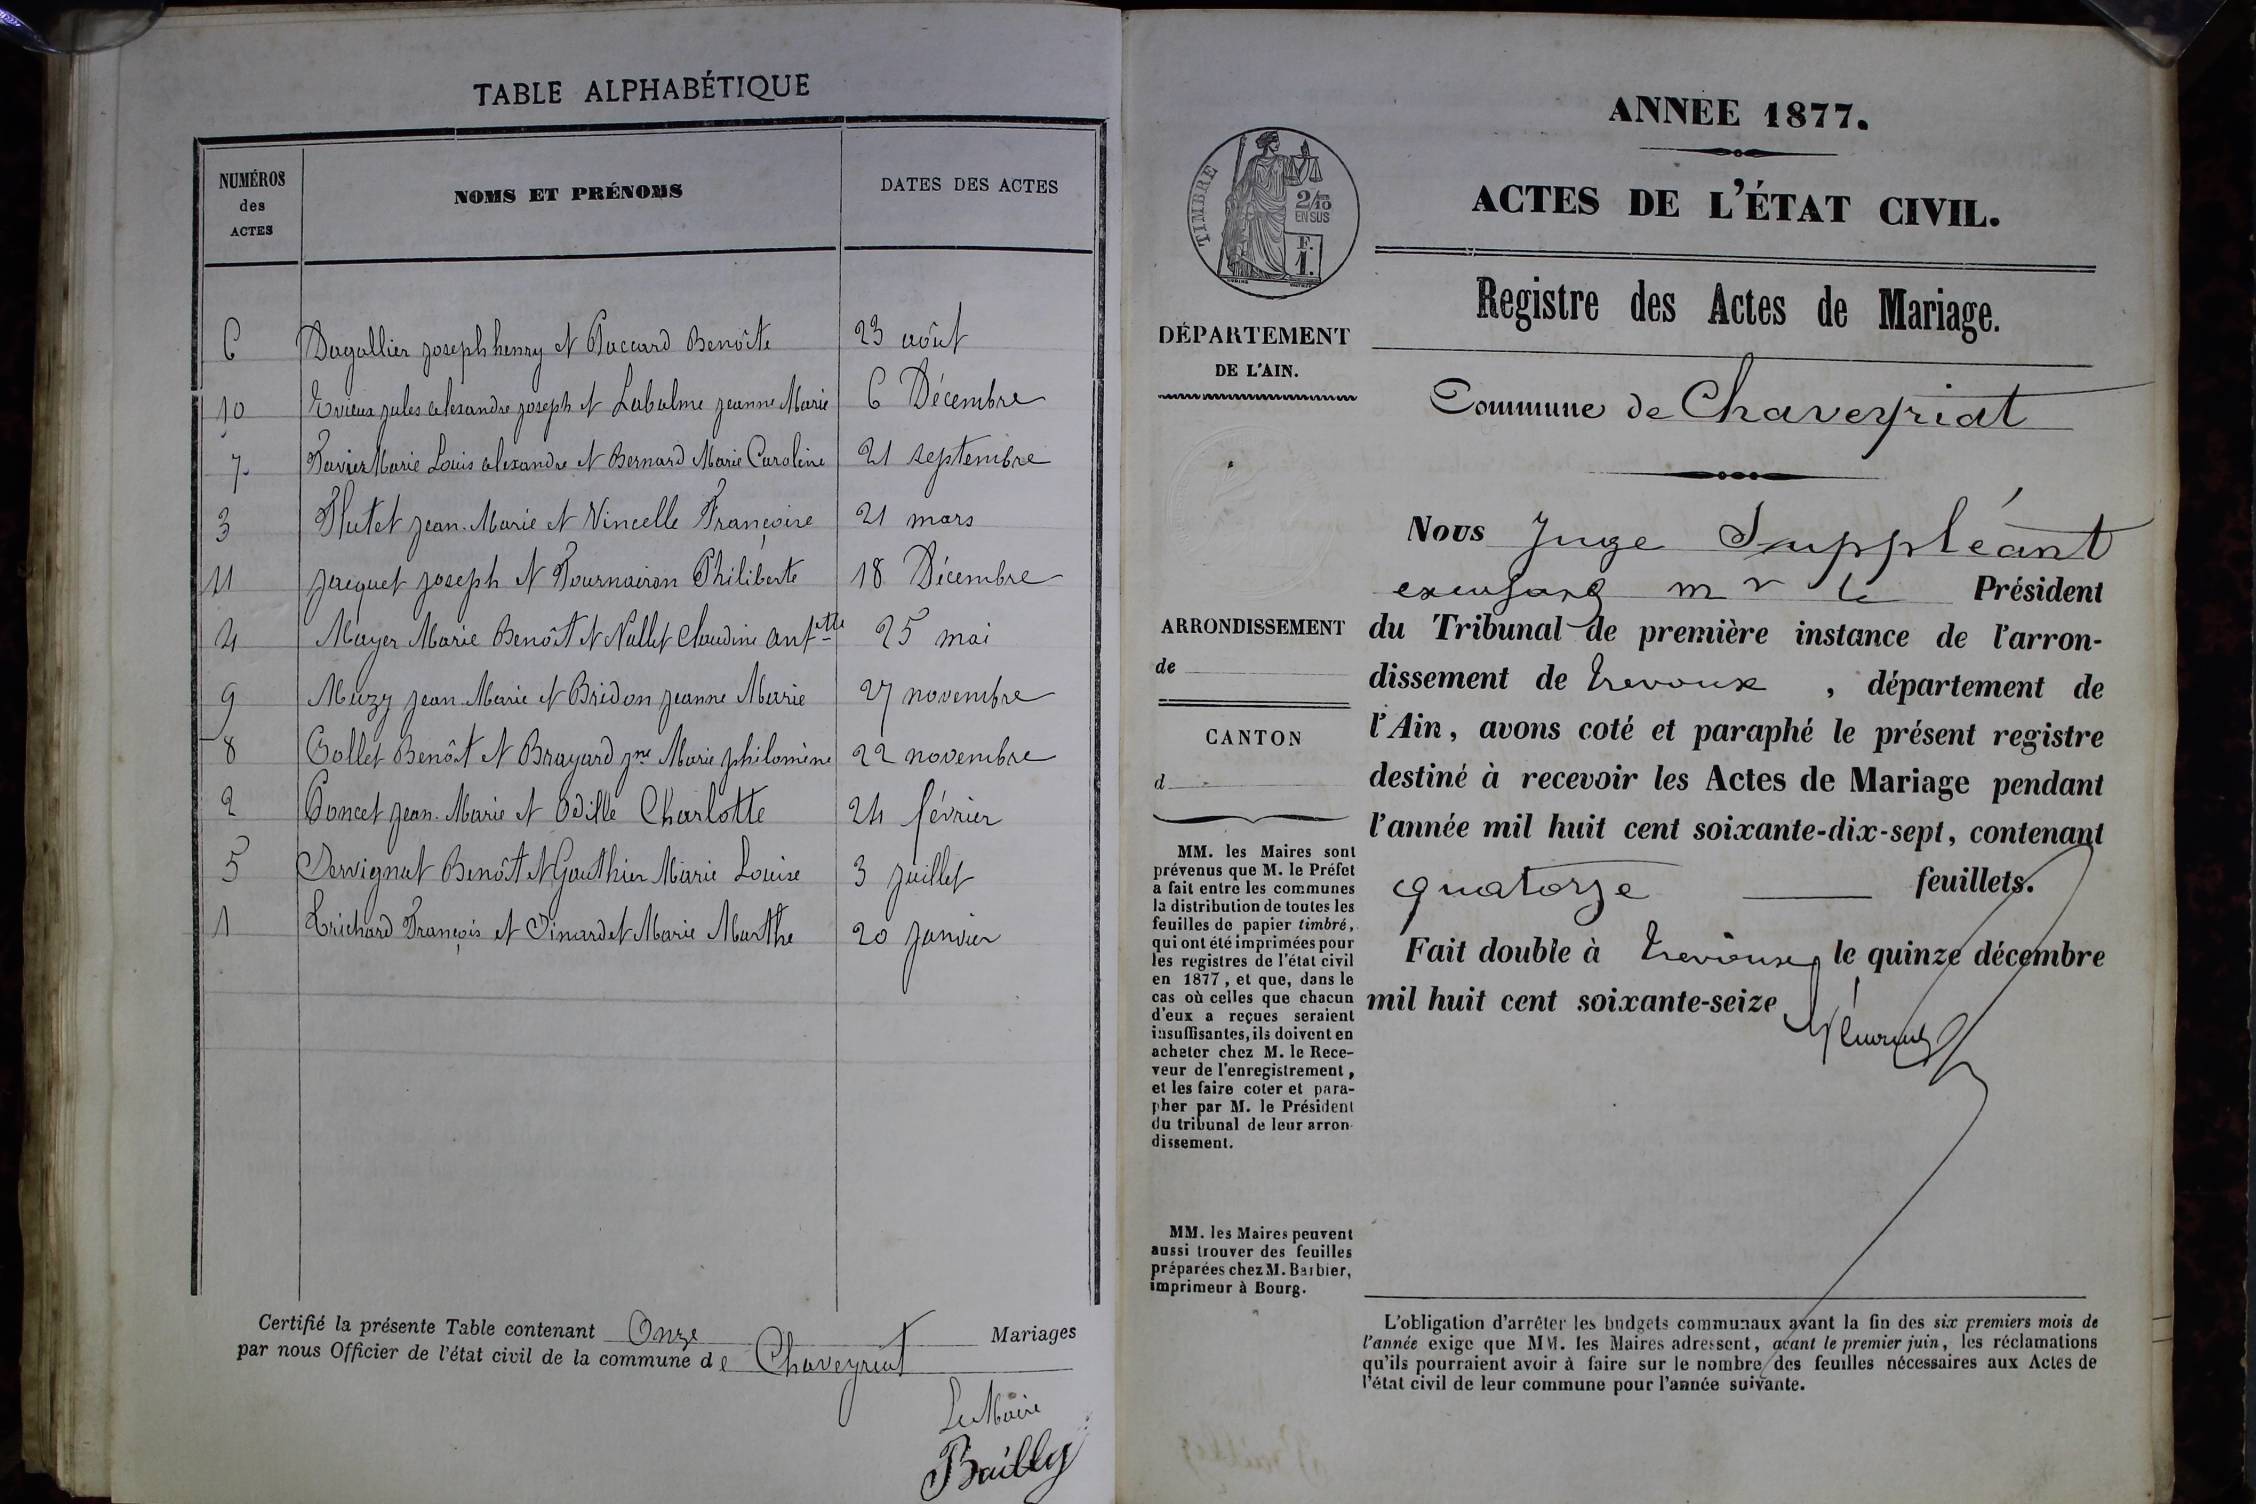 TABLE ALPHABÉTIQUE
NUMÉROS des ACTES
NOMS ET PRÉNOMS
DATES DES ACTES
6 Dagallier joseph henry et Paccard Benoîte 23 août
10 jules alexandre joseph et Labalme jeanne Marie 6 Décembre
7 Favier Marie Louis alexandre et Bernard Marie Caroline 21 septembre
3 Flutet jean-Marie et Vincelle Françoise 21 mars
11 jacquet joseph et Fournairon Philiberte 18 Décembre
4 Mayer Marie Benoît et Nallet Claudine Antette 25 mai
9 Muzy jean-Marie et Bridon jeanne Marie 27 novembre
8 Collet Benoît et Brayard jne Marie philomène 22 novembre
2 Poncet jean-Marie et Odille Charlotte 24 février
5 Servignat Benoît et Gauthier Marie Louise 3 juillet
1 Trichard François et Pinardet Marie Marthe 20 janvier
Certifié la présente Table contenant Onze Mariages
par nous Officier de l'état civil de la commune de Chaveyriat
Le Maire
Bailly
ANNÉE 1877.
ACTES DE L'ÉTAT CIVIL.
TIMBRE
2/10
EN SUS
F.
1.
Registre des Actes de Mariage.
DÉPARTEMENT
DE L'AIN.
Commune de Chaveyriat
Nous Juge Suppléant
excusant mr le Président
du Tribunal de première instance de l'arron-
dissement de Trevoux, département de
l'Ain, avons coté et paraphé le présent registre
destiné à recevoir les Actes de Mariage pendant
l'année mil huit cent soixante-dix-sept, contenant
quatorze feuillets.
Fait double à Trevoux, le quinze décembre
mil huit cent soixante-seize
ARRONDISSEMENT
de
CANTON
d
MM. les Maires sont
prévenus que M. le Préfet
a fait entre les communes
la distribution de toutes les
feuilles de papier timbré,
qui ont été imprimées pour
les registres de l'état civil
en 1877, et que, dans le
cas où celles que chacun
d'eux a reçues seraient
insuffisantes, ils doivent en
acheter chez M. le Rece-
veur de l'enregistrement,
et les faire coter et para-
pher par M. le Président
du tribunal de leur arron-
dissement.
MM. les Maires peuvent
aussi trouver des feuilles
préparées chez M. Barbier,
imprimeur à Bourg.
L'obligation d'arrêter les budgets communaux avant la fin des six premiers mois de
l'année exige que MM. les Maires adressent, avant le premier juin, les réclamations
qu'ils pourraient avoir à faire sur le nombre des feuilles nécessaires aux Actes de
l'état civil de leur commune pour l'année suivante.